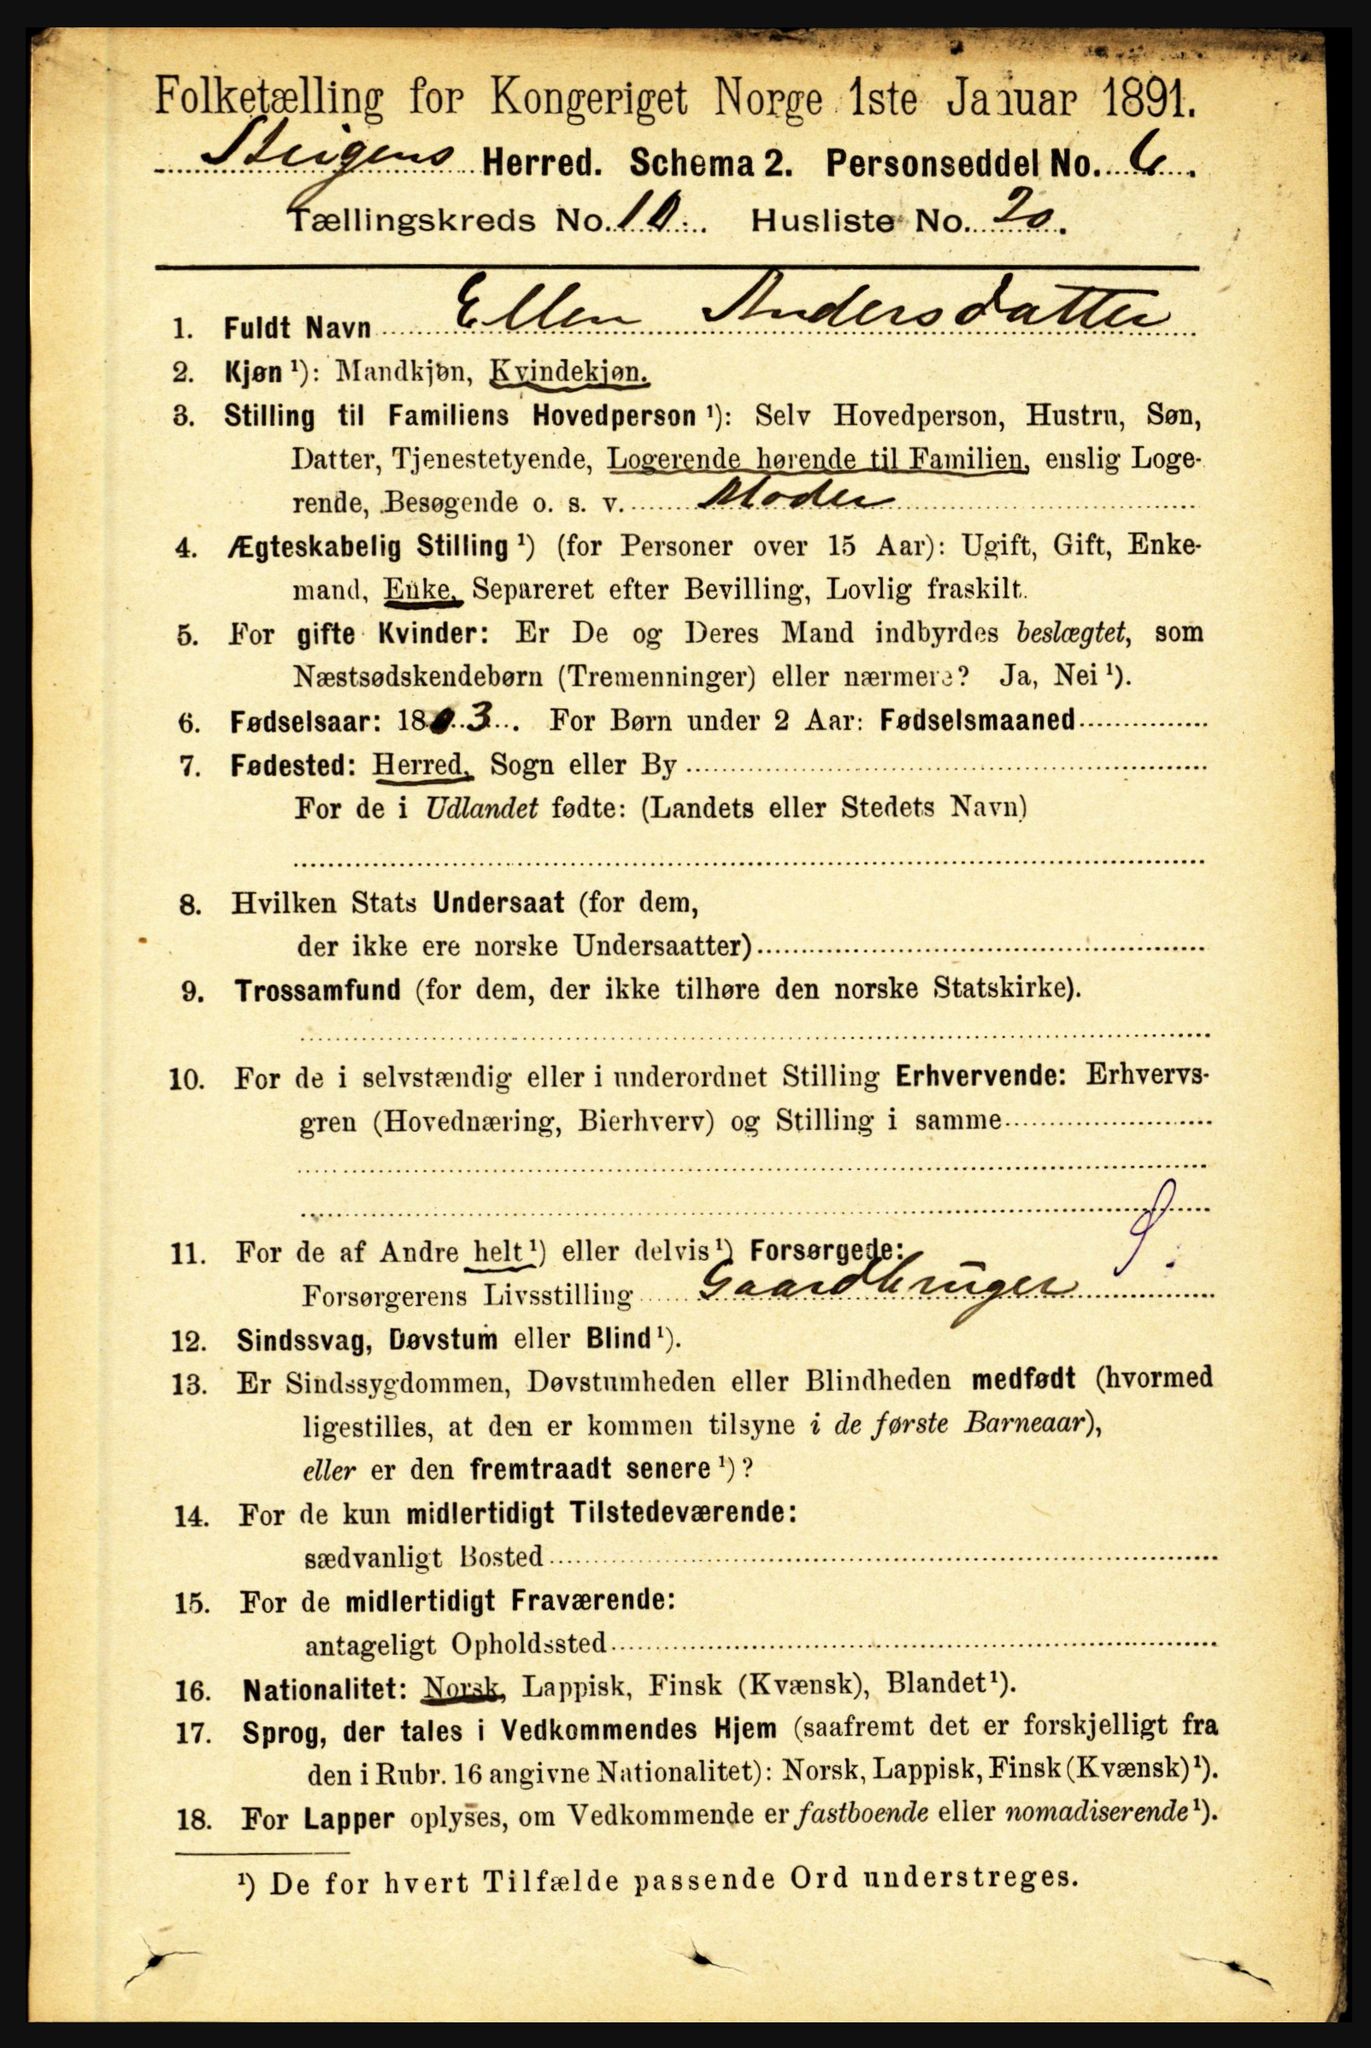 Folketælling for Kongeriget Norge 1ste Januar 1891.
Steigens Herred. Schema 2. Personseddel No. 6.
Tællingskreds No. 10. Husliste No. 20.
1. Fuldt Navn Ellen Andersdatter
2. Kjøn ¹): Mandkjøn, Kvindekjøn.
3. Stilling til Familiens Hovedperson ¹): Selv Hovedperson, Hustru, Søn,
Datter, Tjenestetyende, Logerende hørende til Familien, enslig Loge-
rende, Besøgende o. s. v. Moder
4. Ægteskabelig Stilling ¹) (for Personer over 15 Aar): Ugift, Gift, Enke-
mand, Enke, Separeret efter Bevilling, Lovlig fraskilt.
5. For gifte Kvinder: Er De og Deres Mand indbyrdes beslægtet, som
Næstsødskendebørn (Tremenninger) eller nærmere? Ja, Nei ¹).
6. Fødselsaar: 1803. For Børn under 2 Aar: Fødselsmaaned
7. Fødested: Herred, Sogn eller By
For de i Udlandet fødte: (Landets eller Stedets Navn)
8. Hvilken Stats Undersaat (for dem,
der ikke ere norske Undersaatter)
9. Trossamfund (for dem, der ikke tilhøre den norske Statskirke).
10. For de i selvstændig eller i underordnet Stilling Erhvervende: Erhvervs-
gren (Hovednæring, Bierhverv) og Stilling i samme
11. For de af Andre helt ¹) eller delvis ¹) Forsørgede:
Forsørgerens Livsstilling Gaardbruger
12. Sindssvag, Døvstum eller Blind ¹).
13. Er Sindssygdommen, Døvstumheden eller Blindheden medfødt (hvormed
ligestilles, at den er kommen tilsyne i de første Barneaar),
eller er den fremtraadt senere ¹)?
14. For de kun midlertidigt Tilstedeværende:
sædvanligt Bosted
15. For de midlertidigt Fraværende:
antageligt Opholdssted
16. Nationalitet: Norsk, Lappisk, Finsk (Kvænsk), Blandet ¹).
17. Sprog, der tales i Vedkommendes Hjem (saafremt det er forskjelligt fra
den i Rubr. 16 angivne Nationalitet): Norsk, Lappisk, Finsk (Kvænsk) ¹).
18. For Lapper oplyses, om Vedkommende er fastboende eller nomadiserende ¹).
¹) De for hvert Tilfælde passende Ord understreges.